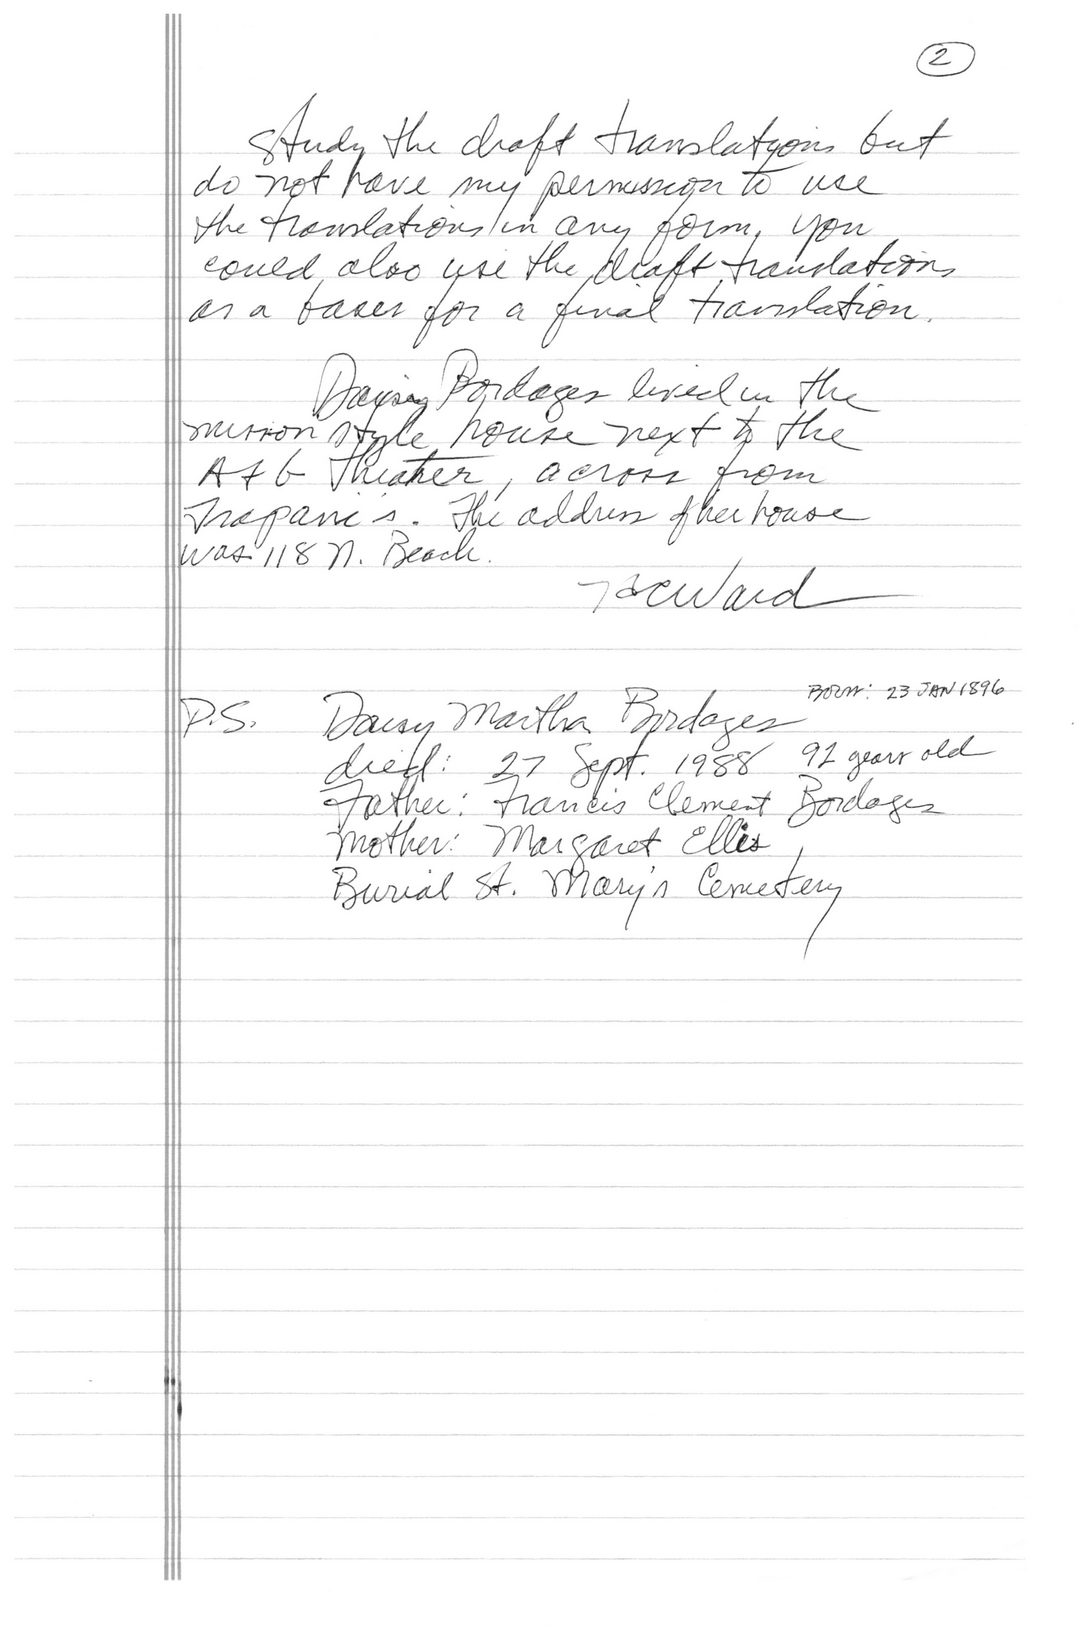 2
study the draft translations but
do not have my permission to use
the translations in any form, you
could also use the draft translations
as a bases for a final translation.
Daisy Bordages lived in the
mission style house next to the
A & G Theater, across from
Trapani's. The address of her house
was 118 N. Beach.
Ward
BORN: 23 JAN 1896
P.S. Daisy Martha Bordages
died: 27 Sept. 1988 92 years old
Father: Francis Clement Bordages
Mother: Margaret Ellis
Burial St. Mary's Cemetery